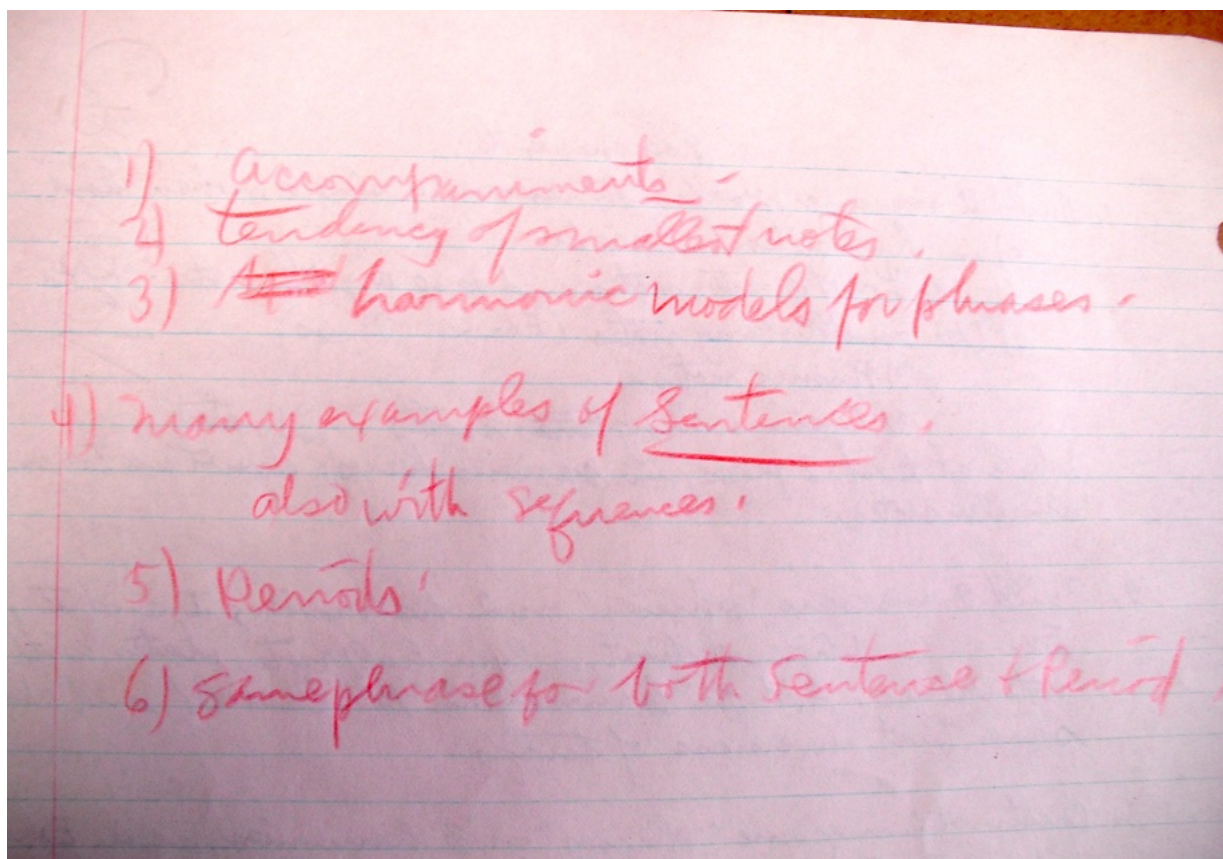 1) Accompaniments -
2) tendency of smallest notes.
3) harmonic models for phrases.
4) many examples of Sentences.
also with sequences.
5) Periods
6) same phrase for both Sentense + Period.